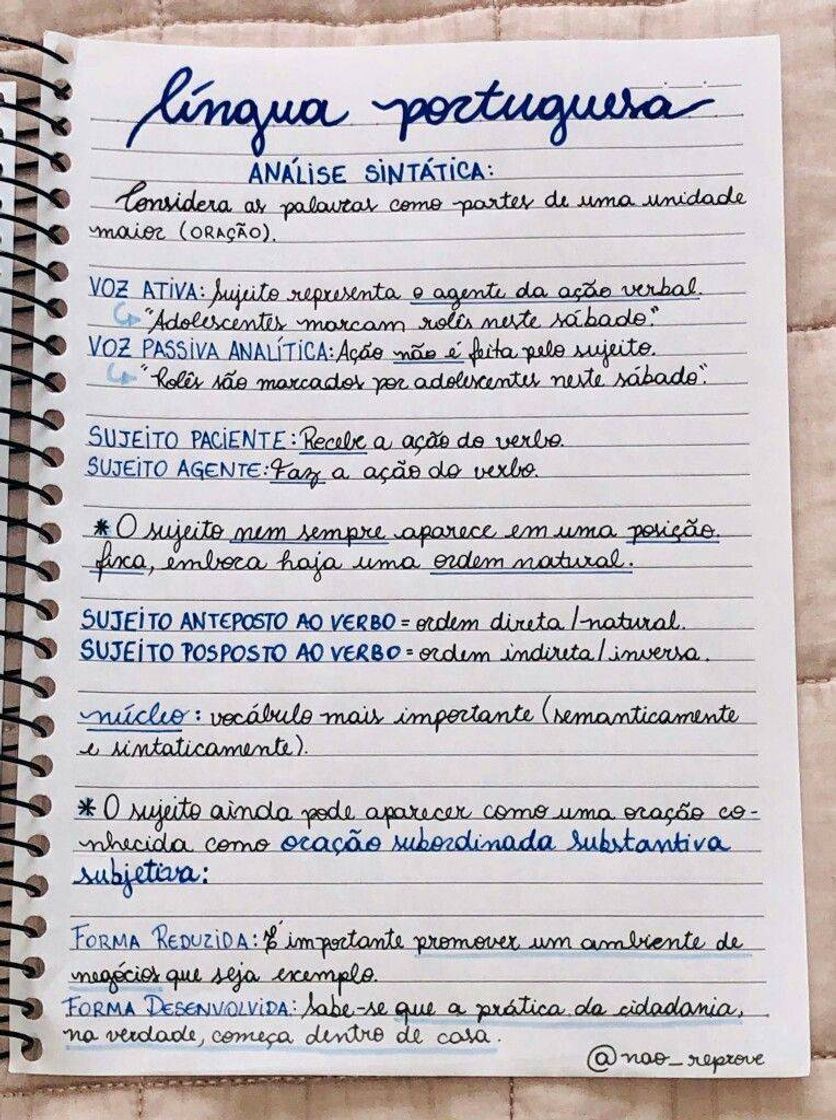 língua portuguesa
ANÁLISE SINTÁTICA:
Considera as palavras como partes de uma unidade
maior (ORAÇÃO).
VOZ ATIVA: Sujeito representa o agente da ação verbal.
"Adolescentes marcam rolês neste sábado."
VOZ PASSIVA ANALÍTICA: Ação não é feita pelo sujeito.
"Rolês são marcados por adolescentes neste sábado".
SUJEITO PACIENTE: Recebe a ação do verbo.
SUJEITO AGENTE: Faz a ação do verbo.
* O sujeito nem sempre aparece em uma posição
fixa, embora haja uma ordem natural.
SUJEITO ANTEPOSTO AO VERBO = ordem direta/natural.
SUJEITO POSPOSTO AO VERBO = ordem indireta/inversa.
núcleo: vocábulo mais importante (semanticamente
e sintaticamente).
* O sujeito ainda pode aparecer como uma oração co-
nhecida como oração subordinada substantiva
subjetiva:
FORMA REDUZIDA: É importante promover um ambiente de
negócios que seja exemplo.
FORMA DESENVOLVIDA: Sabe-se que a prática da cidadania,
na verdade, começa dentro de casa.
@nao_reprove